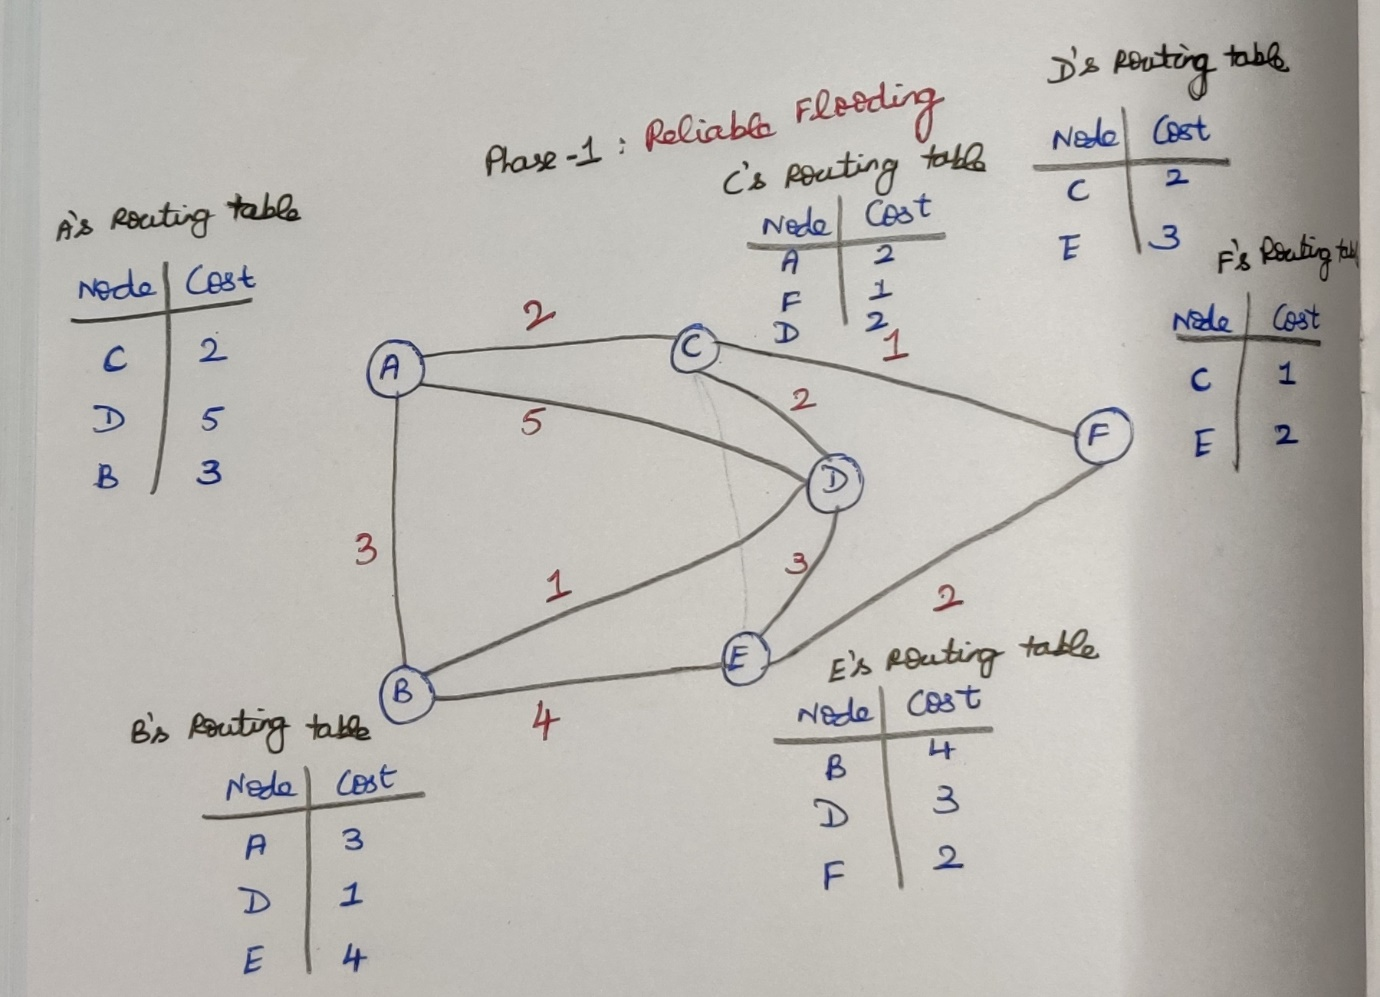 Phase-1 : Reliable Flooding
A's Routing table
Node Cost
C 2
D 5
B 3
C's Routing table
Node Cost
A 2
F 1
D 2
D's Routing table
Node Cost
C 2
E 3
F's Routing tabl
Node Cost
C 1
E 2
A
2
C
1
5
2
F
D
3
1
3
2
B
4
E
B's Routing table
Node Cost
A 3
D 1
E 4
E's Routing table
Node Cost
B 4
D 3
F 2